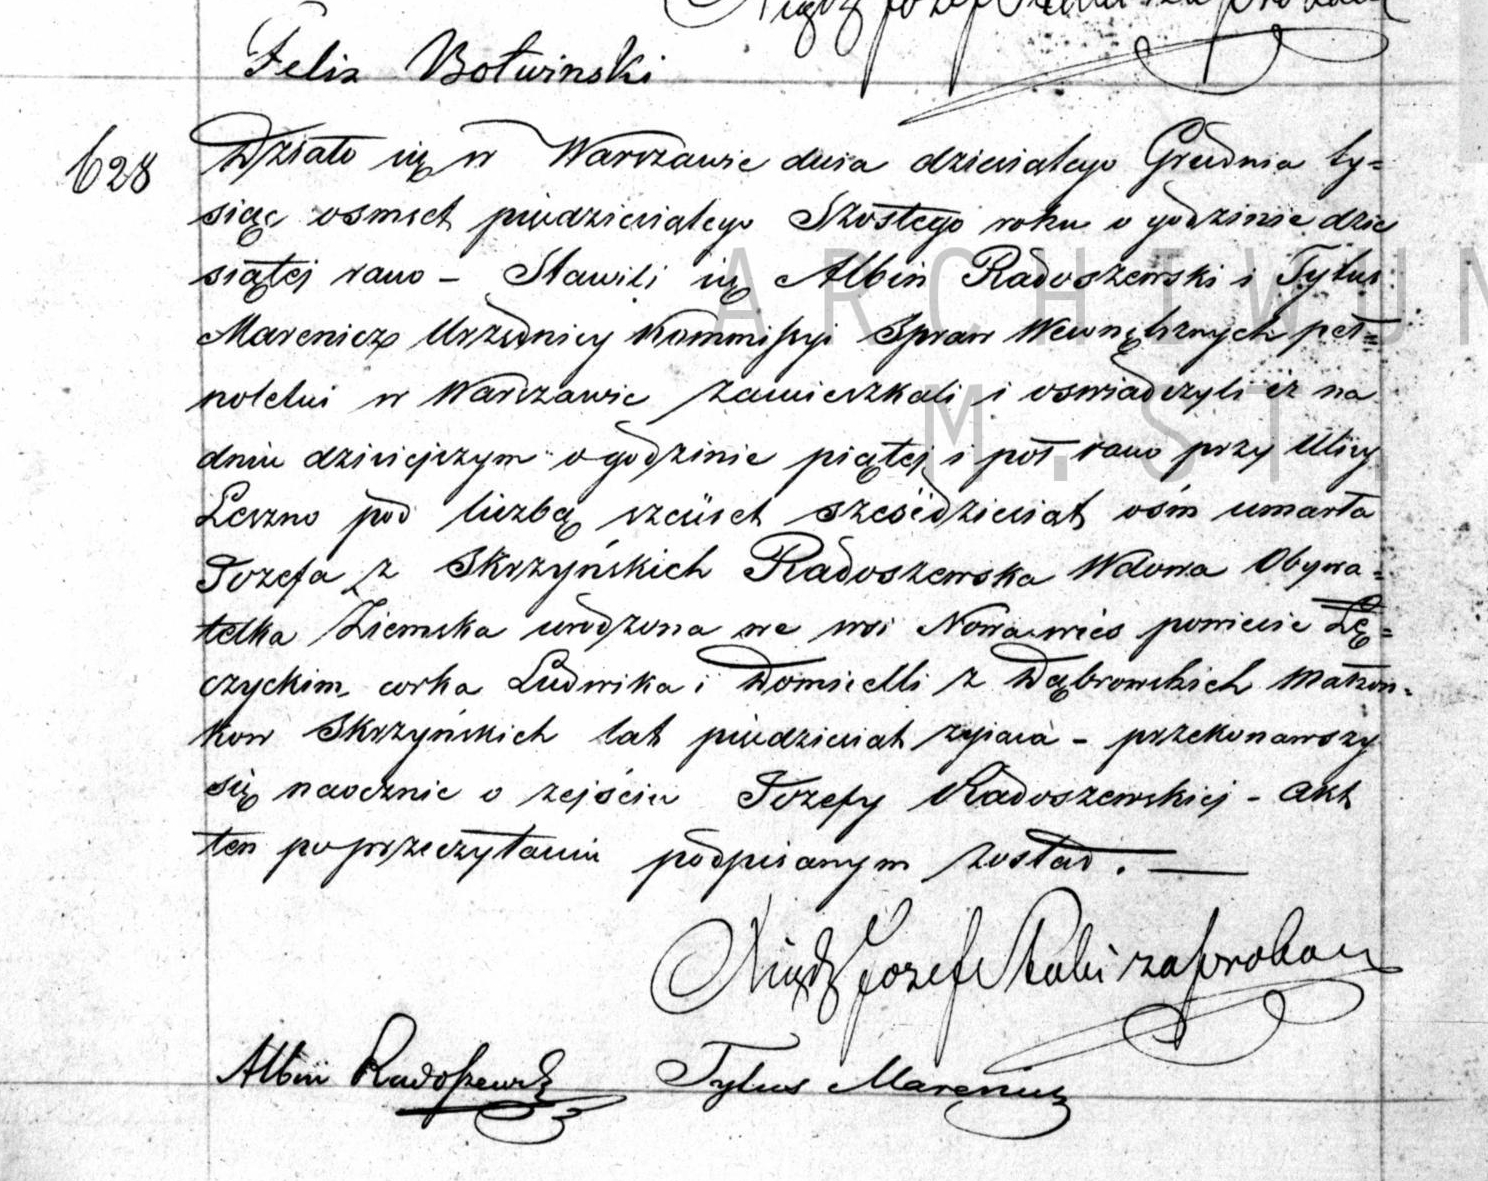 Felix Botwinski
628
Działo się w Warszawie dnia dziewiątego Grudnia ty=
siąc osmset piędziesiątego Szostego roku o godzinie dzie
siątej rano – Stawili się Albin Radoszewski i Tytus
Marenicz Urzędnicy Kommissyi Spraw Wewnętrznych peł=
noletni w Warszawie zamieszkali i oswiadczyli iż na
dniu dzisiejszym o godzinie piątej i pół rano przy Ulicy
Leszno pod liczbą szesćset sześćdziesiat ośm umarła
Jozefa z Skrzyńskich Radoszewska Wdowa Obywa=
telka Ziemska urodzona we wsi Nowawieś powiecie Łę=
czyckim corka Ludwika i Domicelli z Dąbrowskich Małżon=
kow Skrzyńskich lat piędziesiat mająca – przekonawszy
się naocznie o zejściu Jozefy Radoszewskiej – Akt
ten po przeczytaniu podpisanym został. —
Xiądz Jozef za proboszcz
Albin Radoszewski Tytus Marenicz
ARCHIWUM
M. ST.